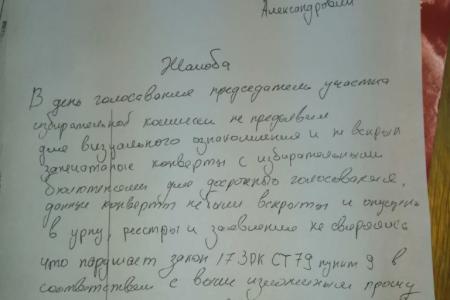 Александрович
Жалоба
В день голосования председатель участка
избирательной комиссии не предъявил
для визуального ознакомления и не вскрыл
запечатаные конверты с избирательными
бюлютенями для досрочного голосования,
данные конверты не были вскрыты и опущены
в урну, реестры и заявление не сверялись
что нарушает закон 173ОК СТ79 пункт 9 в
соответствем с выше изложенным прошу